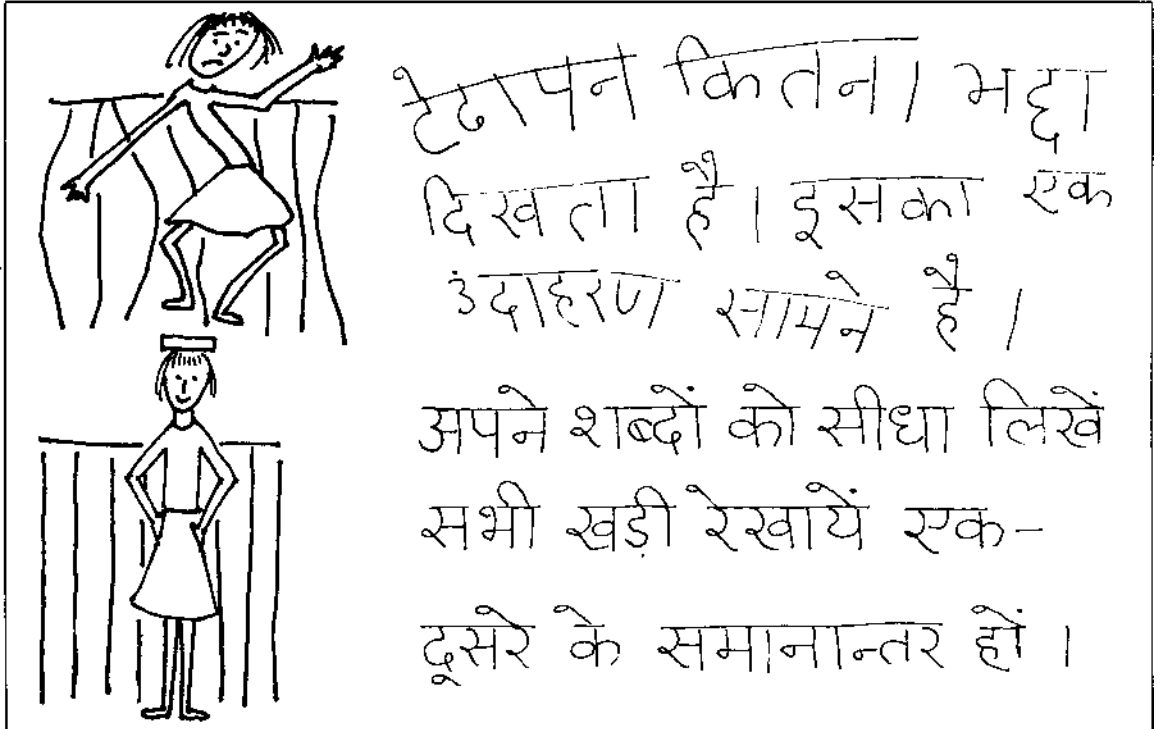 टेढापन कितना भद्दा
दिखता है। इसका एक
उदाहरण सामने है।
अपने शब्दों को सीधा लिखें
सभी खड़ी रेखायें एक-
दूसरे के समानान्तर हों।